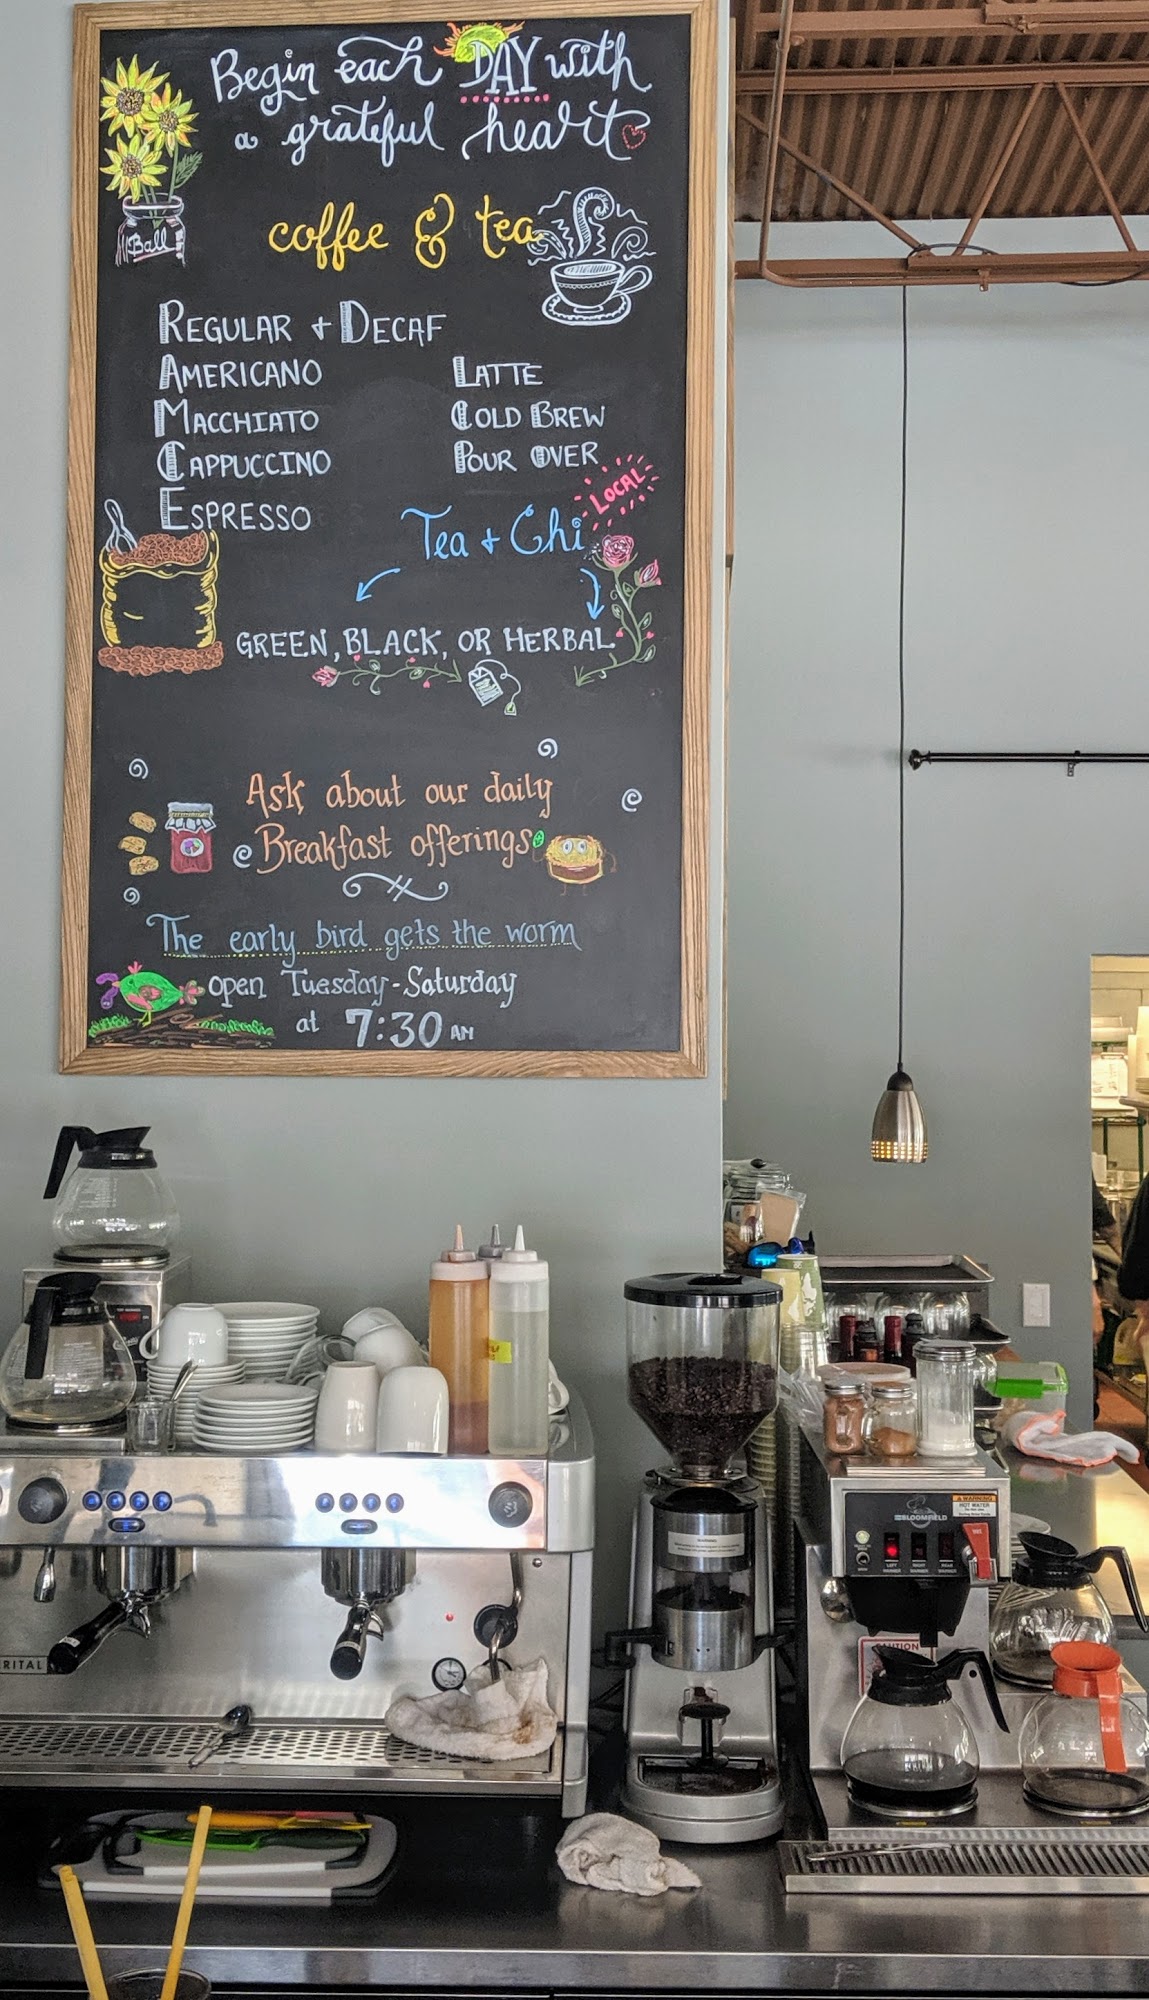 Begin each DAY with
a grateful heart
Ball
coffee & tea
REGULAR + DECAF
AMERICANO
MACCHIATO
CAPPUCCINO
ESPRESSO
LATTE
COLD BREW
POUR OVER
LOCAL
Tea + Chi
GREEN, BLACK, OR HERBAL
Ask about our daily
Breakfast offerings
The early bird gets the worm
open Tuesday - Saturday
at 7:30 AM
RITAL
BLOOMFIELD
WARNING
HOT WATER
CAUTION